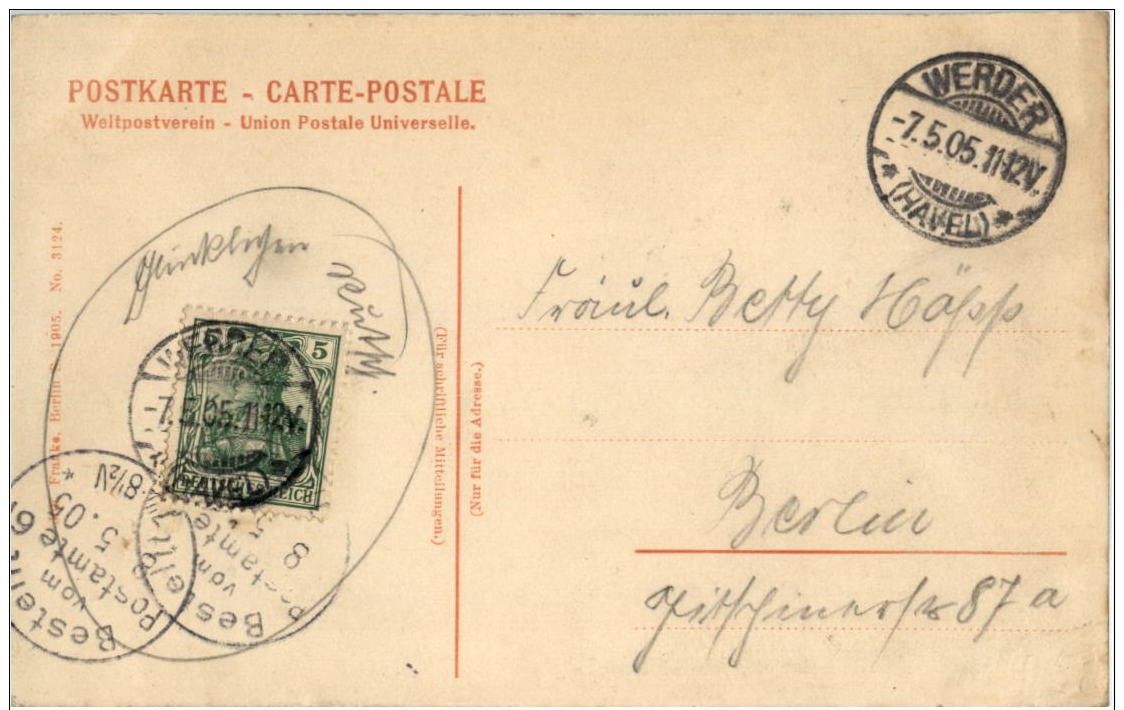 POSTKARTE - CARTE-POSTALE
Weltpostverein - Union Postale Universelle.
WERDER
-7.5.05.11-12V.
* (HAVEL) *
Franke, Berlin 1905. No. 3124.
5
WERDER
7.5.05.11-12V.
(HAVEL)
REICH
(Für schriftliche Mitteilungen.)
(Nur für die Adresse.)
Fräul. Betty Höpp
Berlin
Gitschinerstr 87 a
Bestellt
vom
Postamte
5.05
8½V
Bestellt
vom
Postamte
8